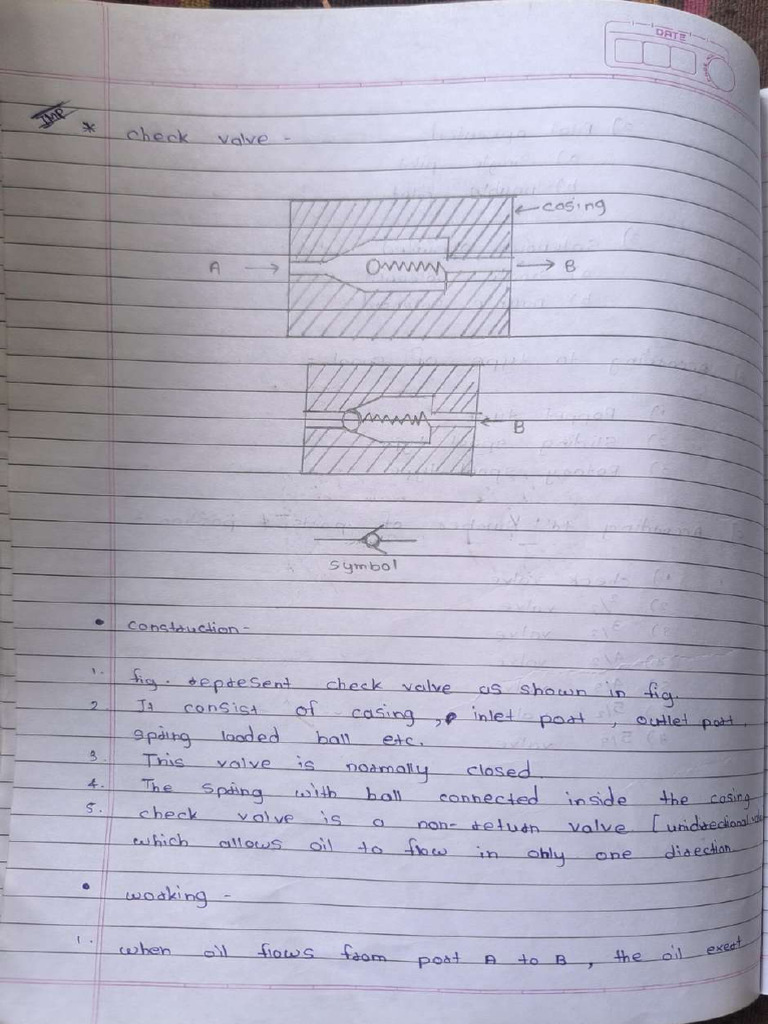 DATE
Imp
* check valve -
casing
A → → B
← B
symbol
• construction -
1. fig. represent check valve as shown in fig.
2 It consist of casing, inlet port, outlet port,
spring loaded ball etc.
3. This valve is normally closed.
4. The spring with ball connected inside the casing
5. check valve is a non-return valve [unidirectional
which allows oil to flow in only one direction
• working -
1. when oil flows from port A to B, the oil exert